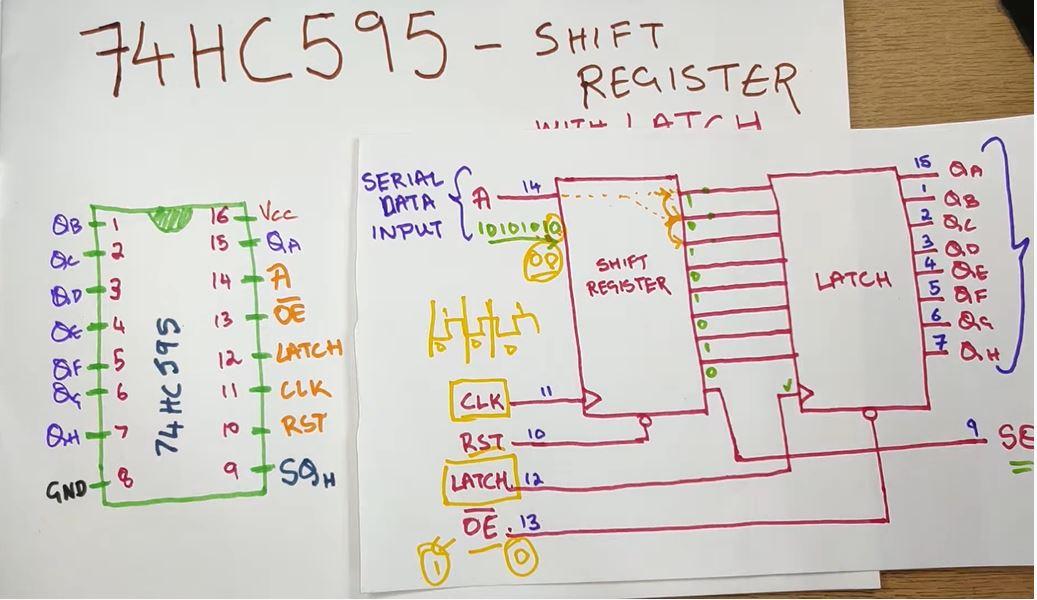 74HC595 - SHIFT
REGISTER
WITH LATCH
QB 1
QC 2
QD 3
QE 4
QF 5
QG 6
QH 7
GND 8
74HC595
16 Vcc
15 QA
14 A
13 OE
12 LATCH
11 CLK
10 RST
9 SQH
SERIAL
DATA
INPUT
A 14
10101010
SHIFT
REGISTER
1
1
0
1
0
1
0
LATCH
15 QA
1 QB
2 QC
3 QD
4 QE
5 QF
6 QG
7 QH
CLK 11
RST 10
LATCH 12
OE 13
1 0
9 SE